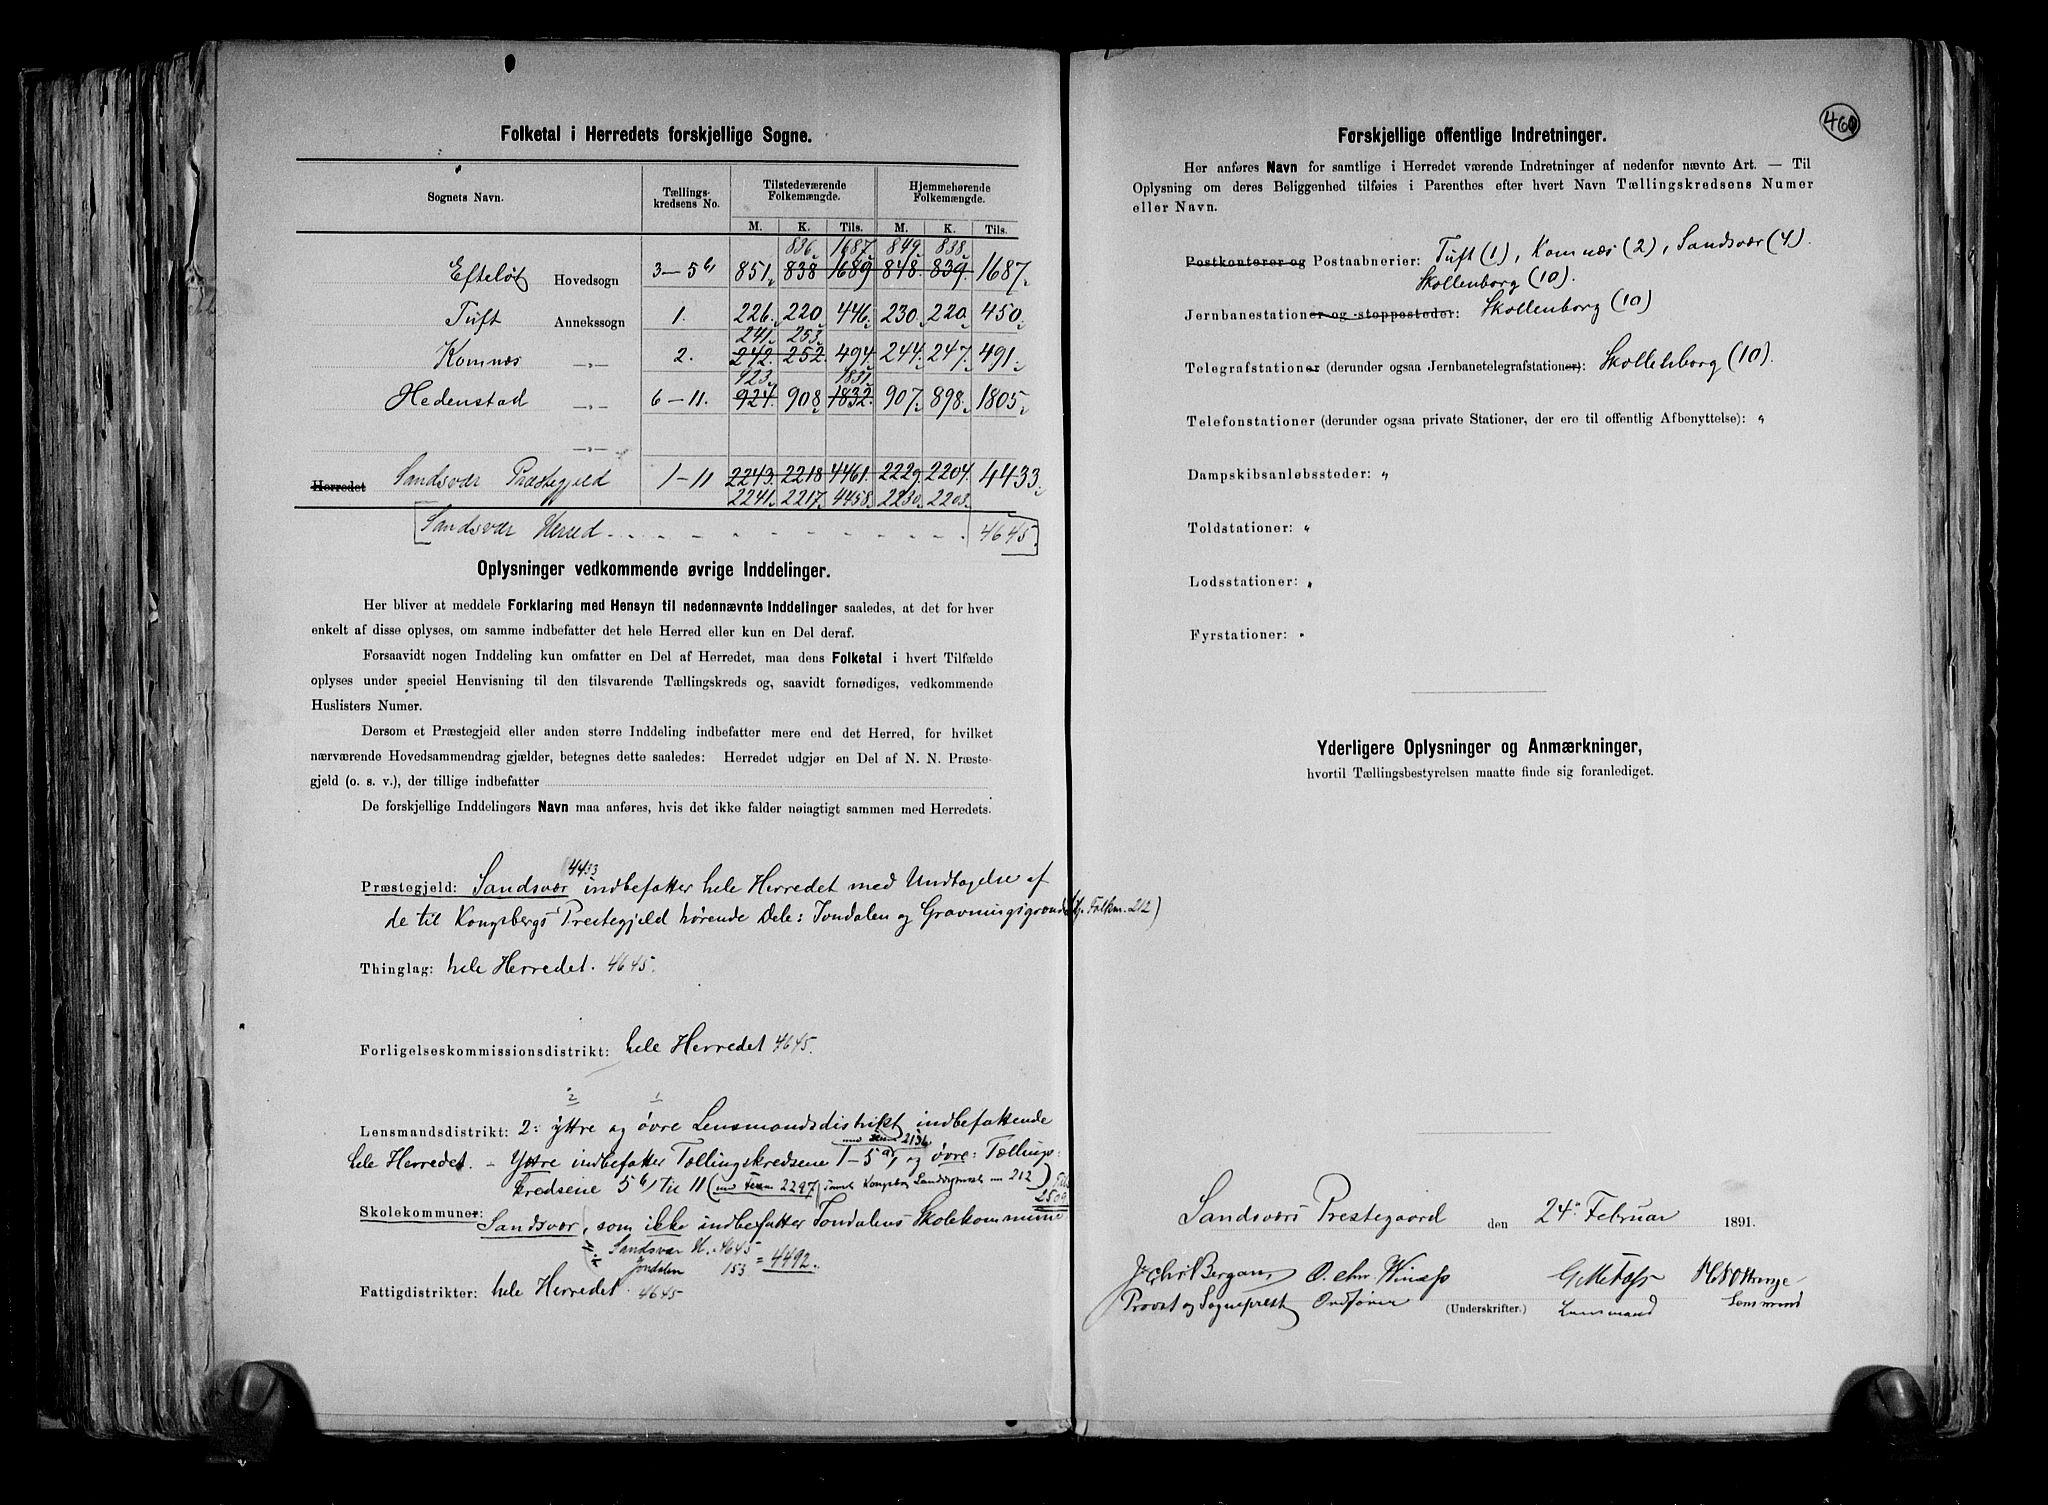 Folketal i Herredets forskjellige Sogne.
Sognets Navn. Tællings-kredsens No. Tilstedeværende Folkemængde. Hjemmehørende Folkemængde.
M. K. Tils. M. K. Tils.
836. 1687. 849. 838.
Efteløt Hovedsogn 3–5b 851. 838 1689 848. 839. 1687.
Tuft Annekssogn 1. 226. 220 446. 230. 220. 450.
241. 253.
Komnæs –„– 2. 242. 252. 494. 244. 247. 491.
923. 1831.
Hedenstad –„– 6–11. 924. 908 1832. 907. 898. 1805.
–„–
Herredet Sandsvær Præstegjeld 1–11 2243. 2218 4461. 2229. 2204. 4433.
2241. 2217. 4458. 2230. 2203.
Sandsvær Herred 4645.
Oplysninger vedkommende øvrige Inddelinger.
Her bliver at meddele Forklaring med Hensyn til nedennævnte Inddelinger saaledes, at det for hver
enkelt af disse oplyses, om samme indbefatter det hele Herred eller kun en Del deraf.
Forsaavidt nogen Inddeling kun omfatter en Del af Herredet, maa dens Folketal i hvert Tilfælde
oplyses under speciel Henvisning til den tilsvarende Tællingskreds og, saavidt fornødiges, vedkommende
Huslisters Numer.
Dersom et Præstegjeld eller anden større Inddeling indbefatter mere end det Herred, for hvilket
nærværende Hovedsammendrag gjælder, betegnes dette saaledes: Herredet udgjør en Del af N. N. Præste-
gjeld (o. s. v.), der tillige indbefatter
De forskjellige Inddelingers Navn maa anføres, hvis det ikke falder nøiagtigt sammen med Herredets.
4433
Præstegjeld: Sandsvær indbefatter hele Herredet med Undtagelse af
de til Kongsbergs Prestegjeld hørende Dele: Jondalen og Gravningsgrend Folkm. 212)
Thinglag: hele Herredet. 4645.
Forligelseskommissionsdistrikt: hele Herredet 4645.
2 1
Lensmandsdistrikt: 2: yttre og øvre Lensmandsdistrikt indbefattende
2136
hele Herredet. – Yttre indbefatter Tællingskredsene 1–5a, og øvre: Tællings-
kredsene 5b, til 11 2297 212 2509
Skolekommuner: Sandsvær, som ikke indbefatter Jondalens Skolekommune
Sandsvær H. 4645
Jondalen 153 = 4492.
Fattigdistrikter: hele Herredet. 4645
460
Forskjellige offentlige Indretninger.
Her anføres Navn for samtlige i Herredet værende Indretninger af nedenfor nævnte Art. — Til
Oplysning om deres Beliggenhed tilføies i Parenthes efter hvert Navn Tællingskredsens Numer
eller Navn.
Postkontorer og Postaabnerier: Tuft (1), Komnæs (2), Sandsvær (4).
Skollenborg (10).
Jernbanestationer og -stoppesteder: Skollenborg (10)
Telegrafstationer (derunder ogsaa Jernbanetelegrafstationer): Skollenborg (10).
Telefonstationer (derunder ogsaa private Stationer, der ere til offentlig Afbenyttelse): „
Dampskibsanløbssteder: „
Toldstationer: „
Lodsstationer: „
Fyrstationer: „
Yderligere Oplysninger og Anmærkninger,
hvortil Tællingsbestyrelsen maatte finde sig foranlediget.
Sandsværs Prestegaard den 24. Februar 1891.
Jochr Bergan, O. Chr Winæss
Provst og Sogneprest Ordfører (Underskrifter.) Lensmand Lensmand